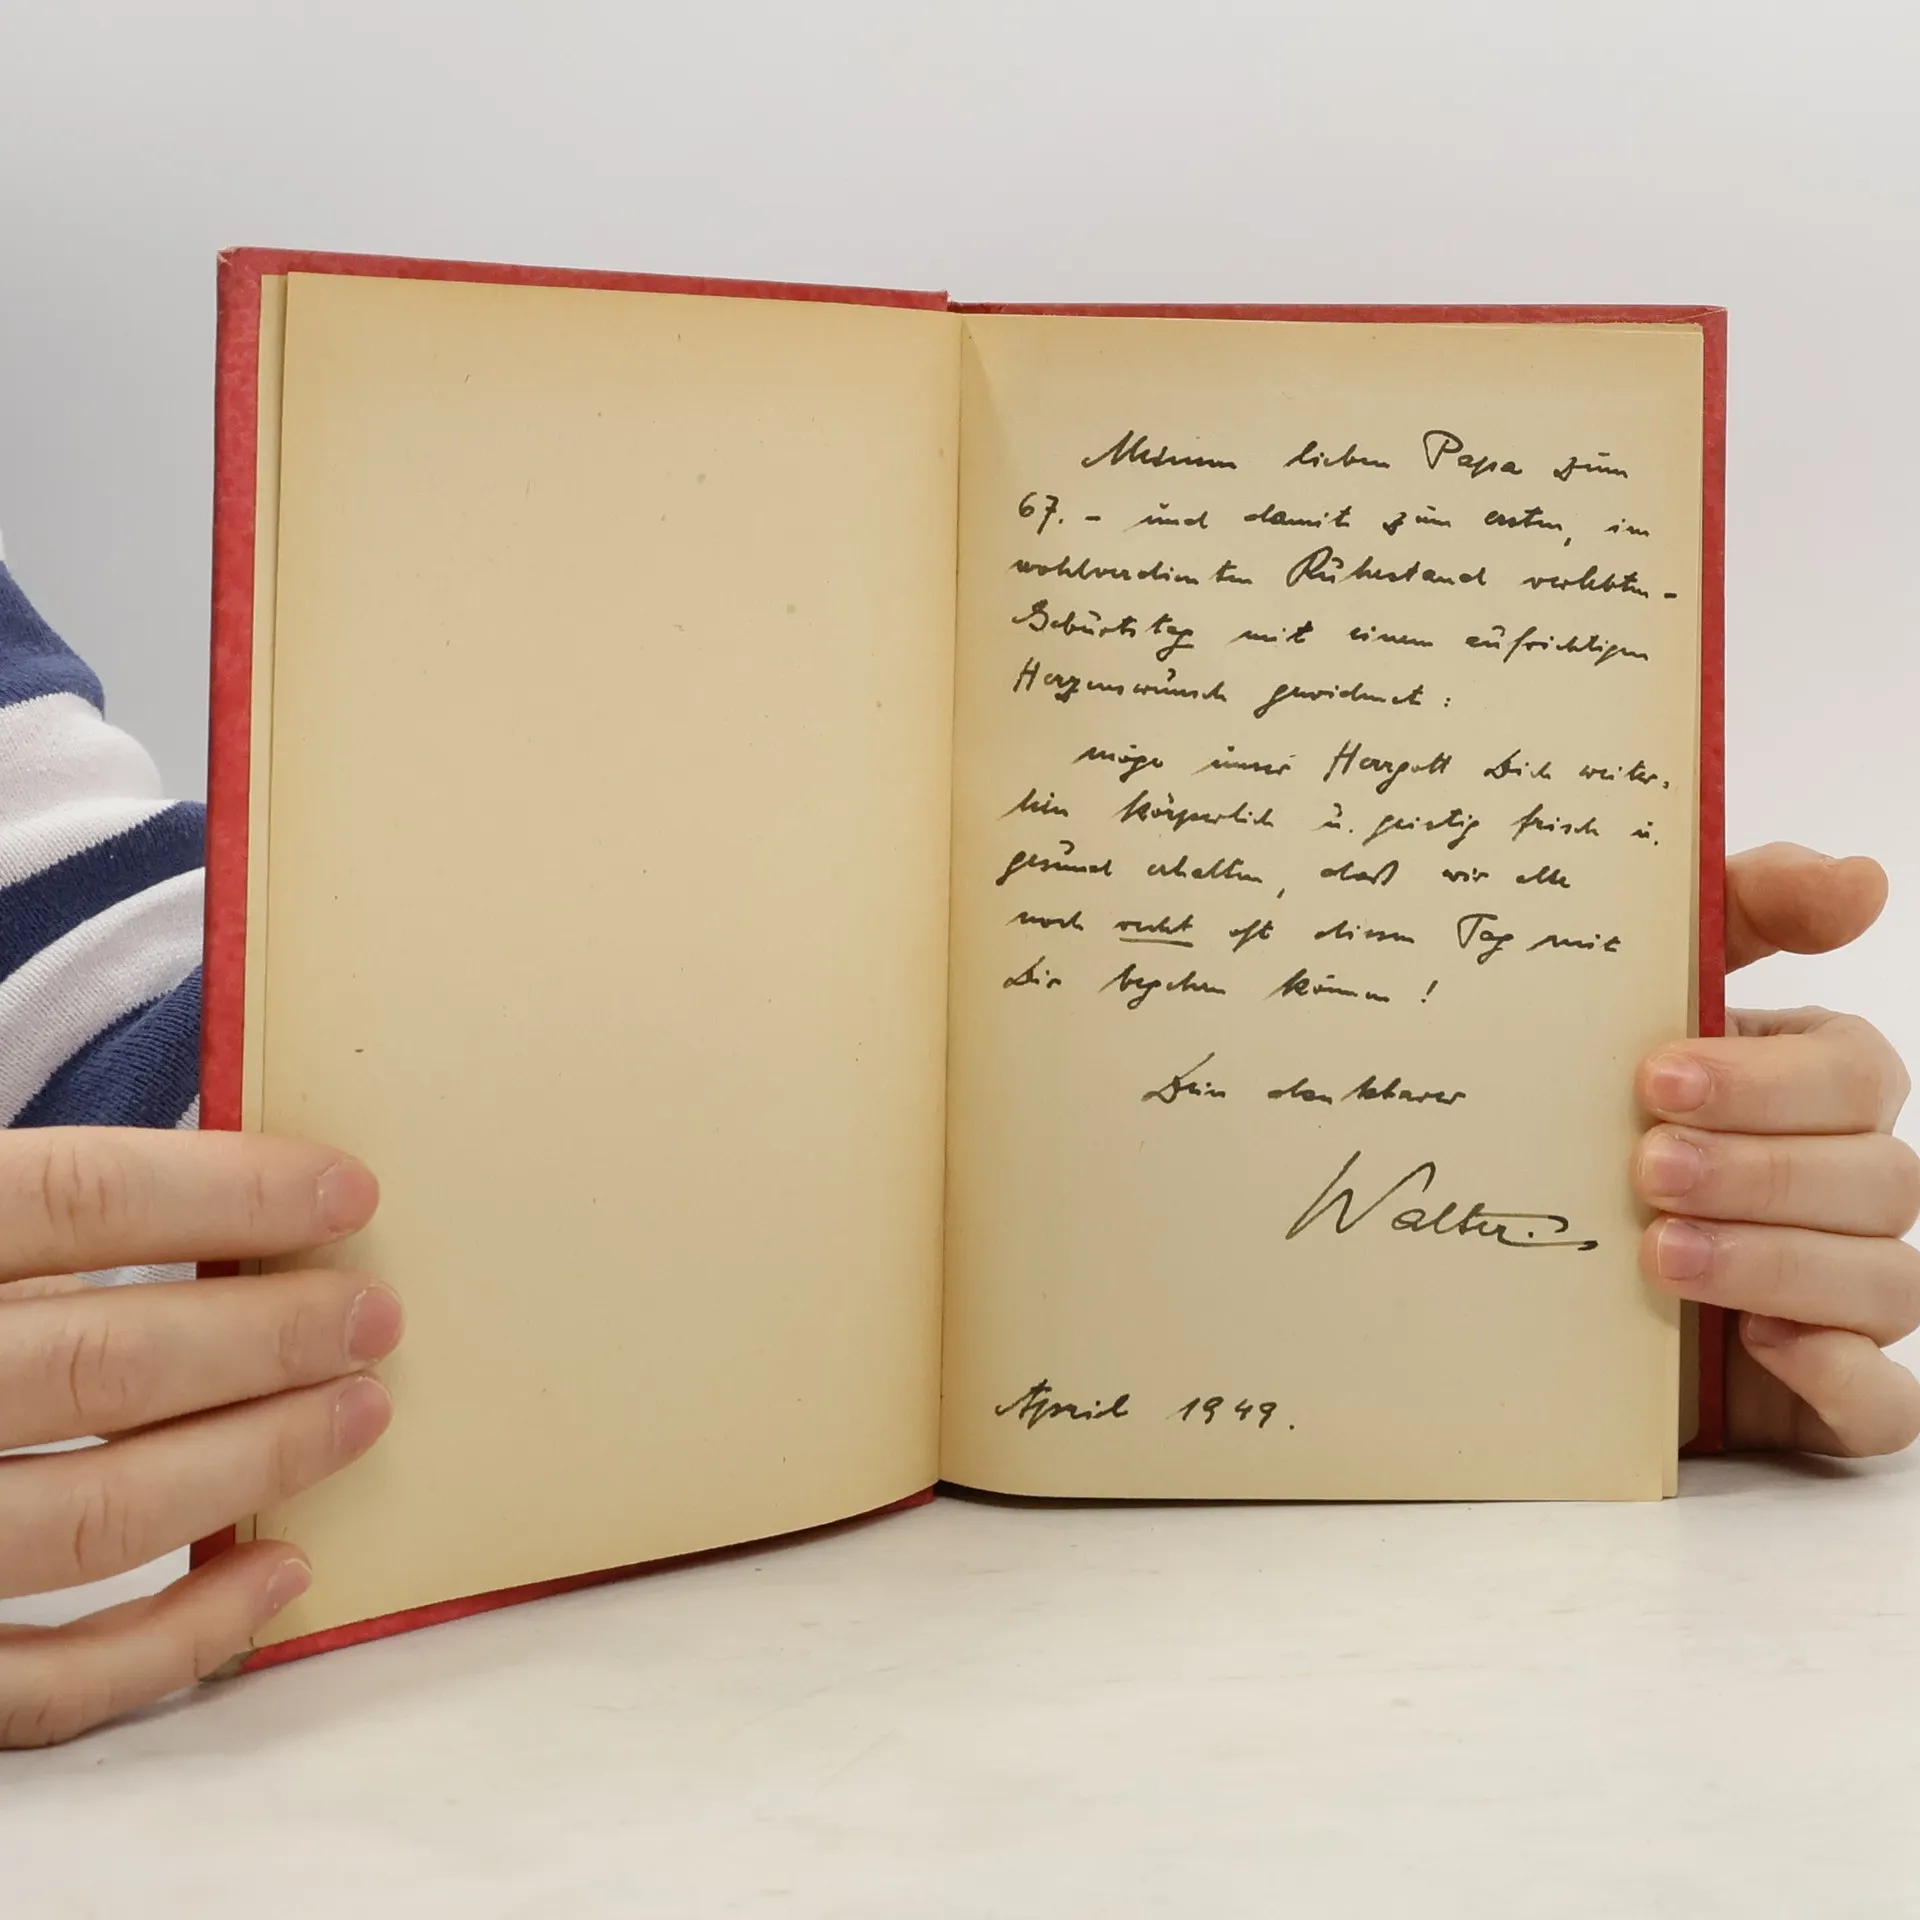 Meinem lieben Papa zum
67. - und damit zum ersten, im
wohlverdienten Ruhestand verlebten -
Geburtstag mit einem aufrichtigen
Herzenswunsch gewidmet :
möge unser Herrgott Dich weiter-
hin körperlich u. geistig frisch u.
gesund erhalten, daß wir alle
noch recht oft diesen Tag mit
Dir begehen können !
Dein dankbarer
Walter.
April 1949.